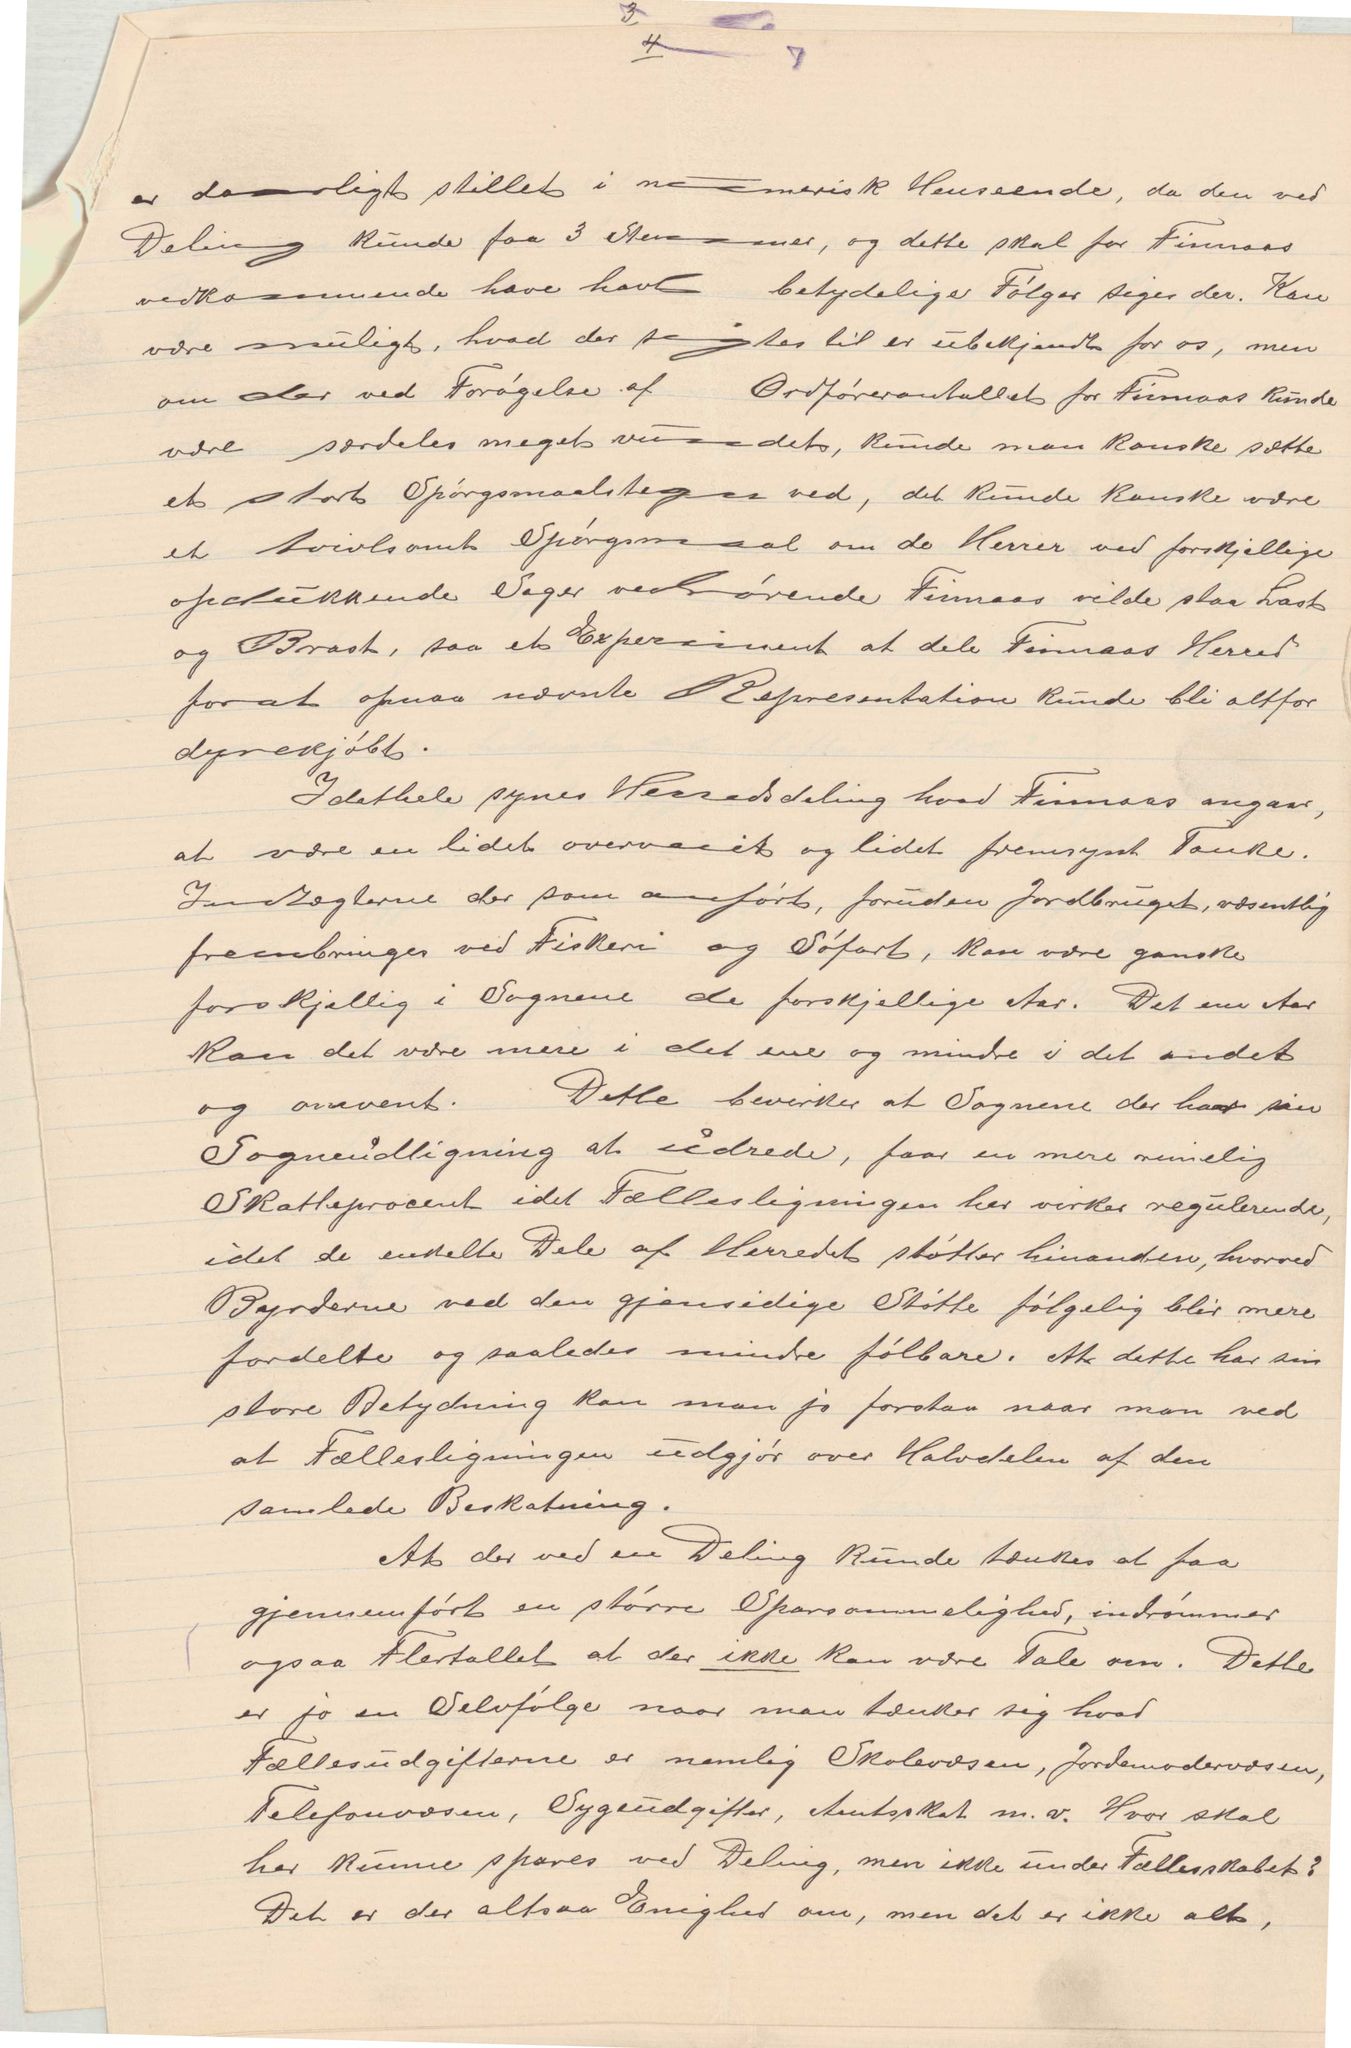 3
4 7
er daarligt stillet i numerisk Henseende, da den ved
Deling kunde faa 3 Stemmer, og dette skal for Finnaas
vedkommende have havt betydelige Følger siges der. Kan
være muligt, hvad der sigtes til er ubekjendt for os, men
om der ved Forøgelse af Ordførerantallet for Finnaas kunde
være særdeles meget vundet, kunde man kanske sætte
et stort Spørgsmaalstegn ved, det kunde kanske være
et tvivlsomt Spørgsmaal om de Herrer ved forskjellige
opdukkende Sager vedhørende Finnaas vilde staa Last
og Brast, saa et Experiment at dele Finnaas Herred
forat opnaa nævnte Representation kunde bli altfor
dyrekjøbt.
Idethele synes Herredsdeling hvad Finnaas angaar,
at være en lidet overveiet og lidet fremsynt Tanke.
Indtægterne der som anført, foruden Jordbruget, væsentlig
frembringes ved Fiskeri og Søfart, kan være ganske
forskjellig i Sognene de forskjellige Aar. Det ene Aar
kan det være mere i det ene og mindre i det andet
og omvent. Dette bevirker at Sognene der har sin
Sogneudligning at udrede, faar en mere rimelig
Skatteprocent idet Fællesligningen her virker regulerende,
idet de enkelte Dele af Herredet støtter hinanden, hvorved
Byrderne ved den gjensidige Støtte følgelig blir mere
fordelte og saaledes mindre følbare. At dette har sin
store Betydning kan man jo forstaa naar man ved
at Fællesligningen udgjør over Halvdelen af den
samlede Beskatning.
At der ved en Deling kunde tænkes at faa
gjennemført en større Sparsommelighed, indrømmer
ogsaa Flertallet at der ikke kan være Tale om. Dette
er jo en Selvfølge naar man tænker sig hvad
Fællesudgifterne er nemlig Skolevæsen, Jordemodervæsen,
Telefonvæsen, Sygeudgifter, Amtsskat m.v. Hvor skal
her kunne spares ved Deling, men ikke under Fællesskabet?
Det er der altsaa Enighed om, men det er ikke alt,